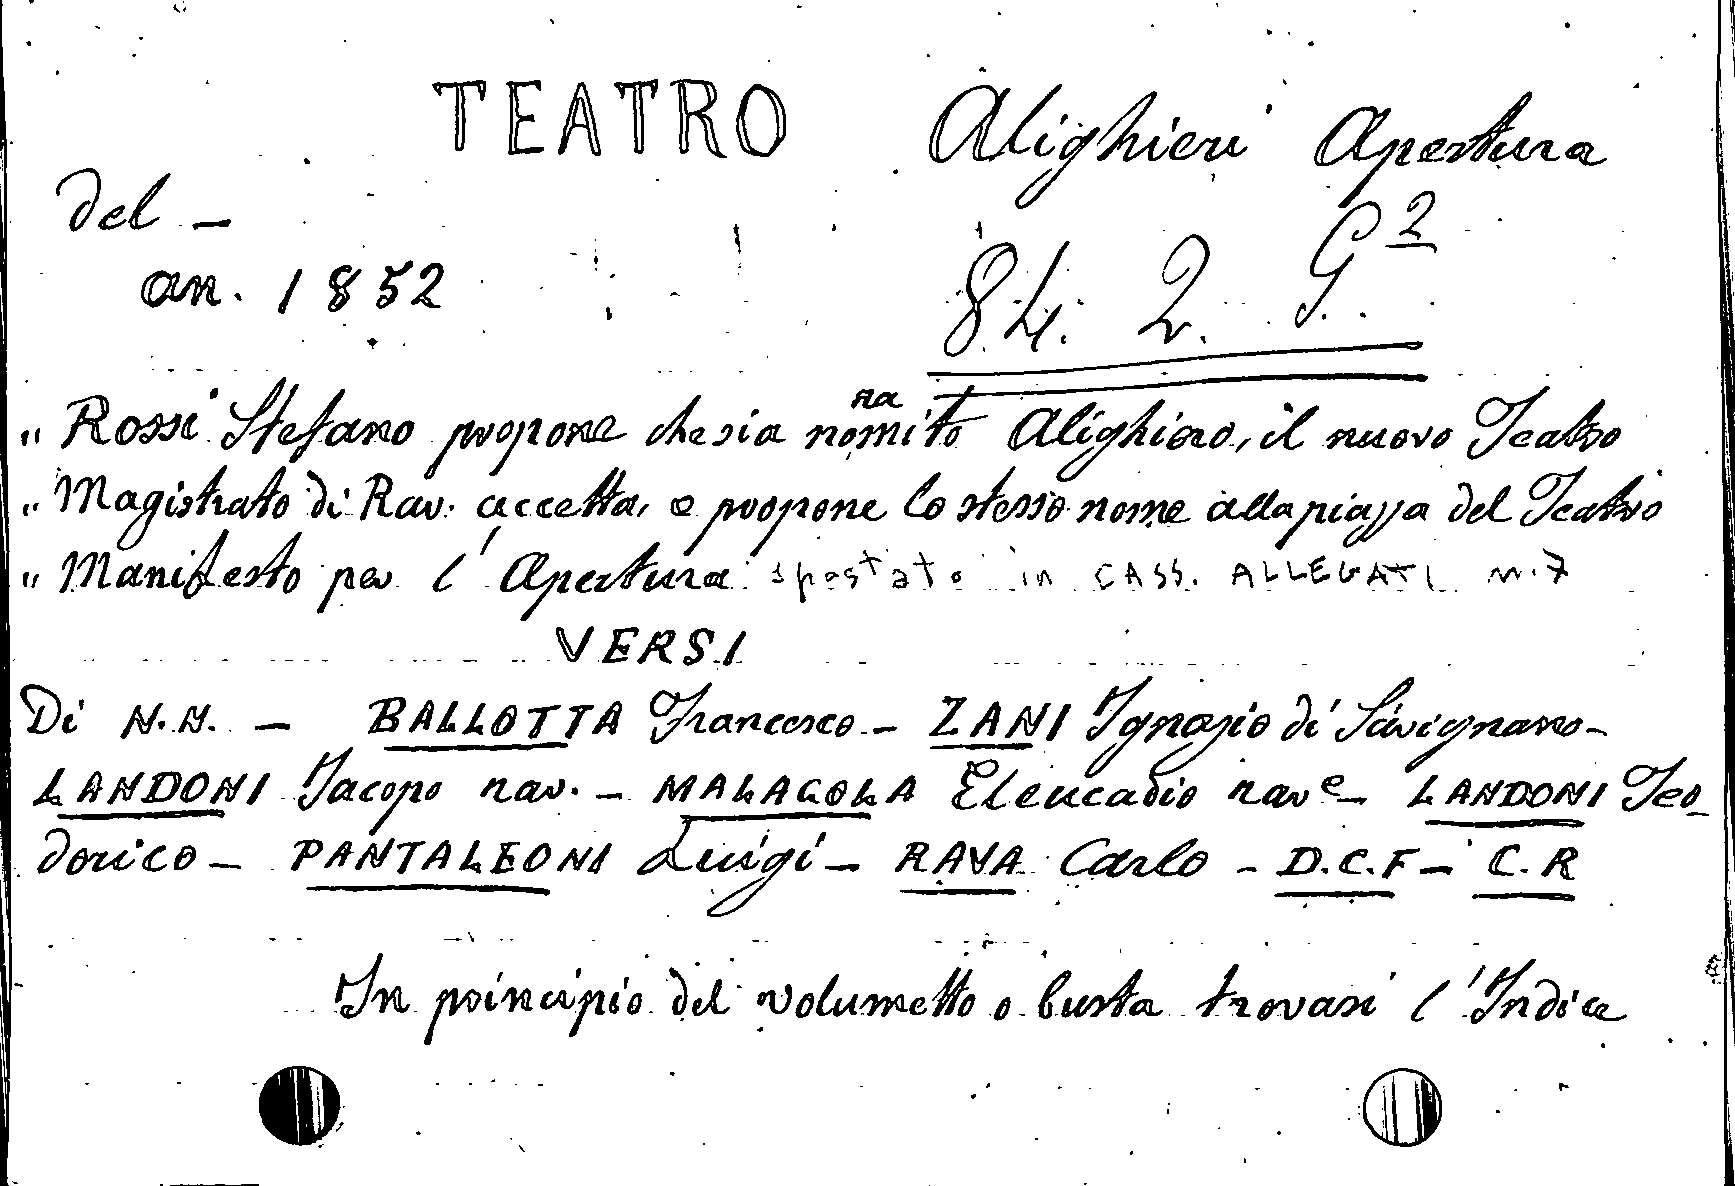 TEATRO Alighieri Apertura
del –
an. 1852
84. 2. G.²
ra
„ Rossi Stefano propone che sia nomito Alighiero, il nuovo Teatro
„ Magistrato di Rav. accetta, e propone lo stesso nome alla piazza del Teatro
„ Manifesto per l'Apertura spostato in CASS. ALLEGATI n. 7
VERSI
Di N.N. – BALLOTTA Francesco – ZANI Ignazio di Savignano –
LANDONI Jacopo rav. – MALAGOLA Eleucadio rav e – LANDONI Teo_
dorico – PANTALEONI Luigi – RAVA Carlo – D.C.F – C.R
In principio del volumetto o busta trovasi l'Indice